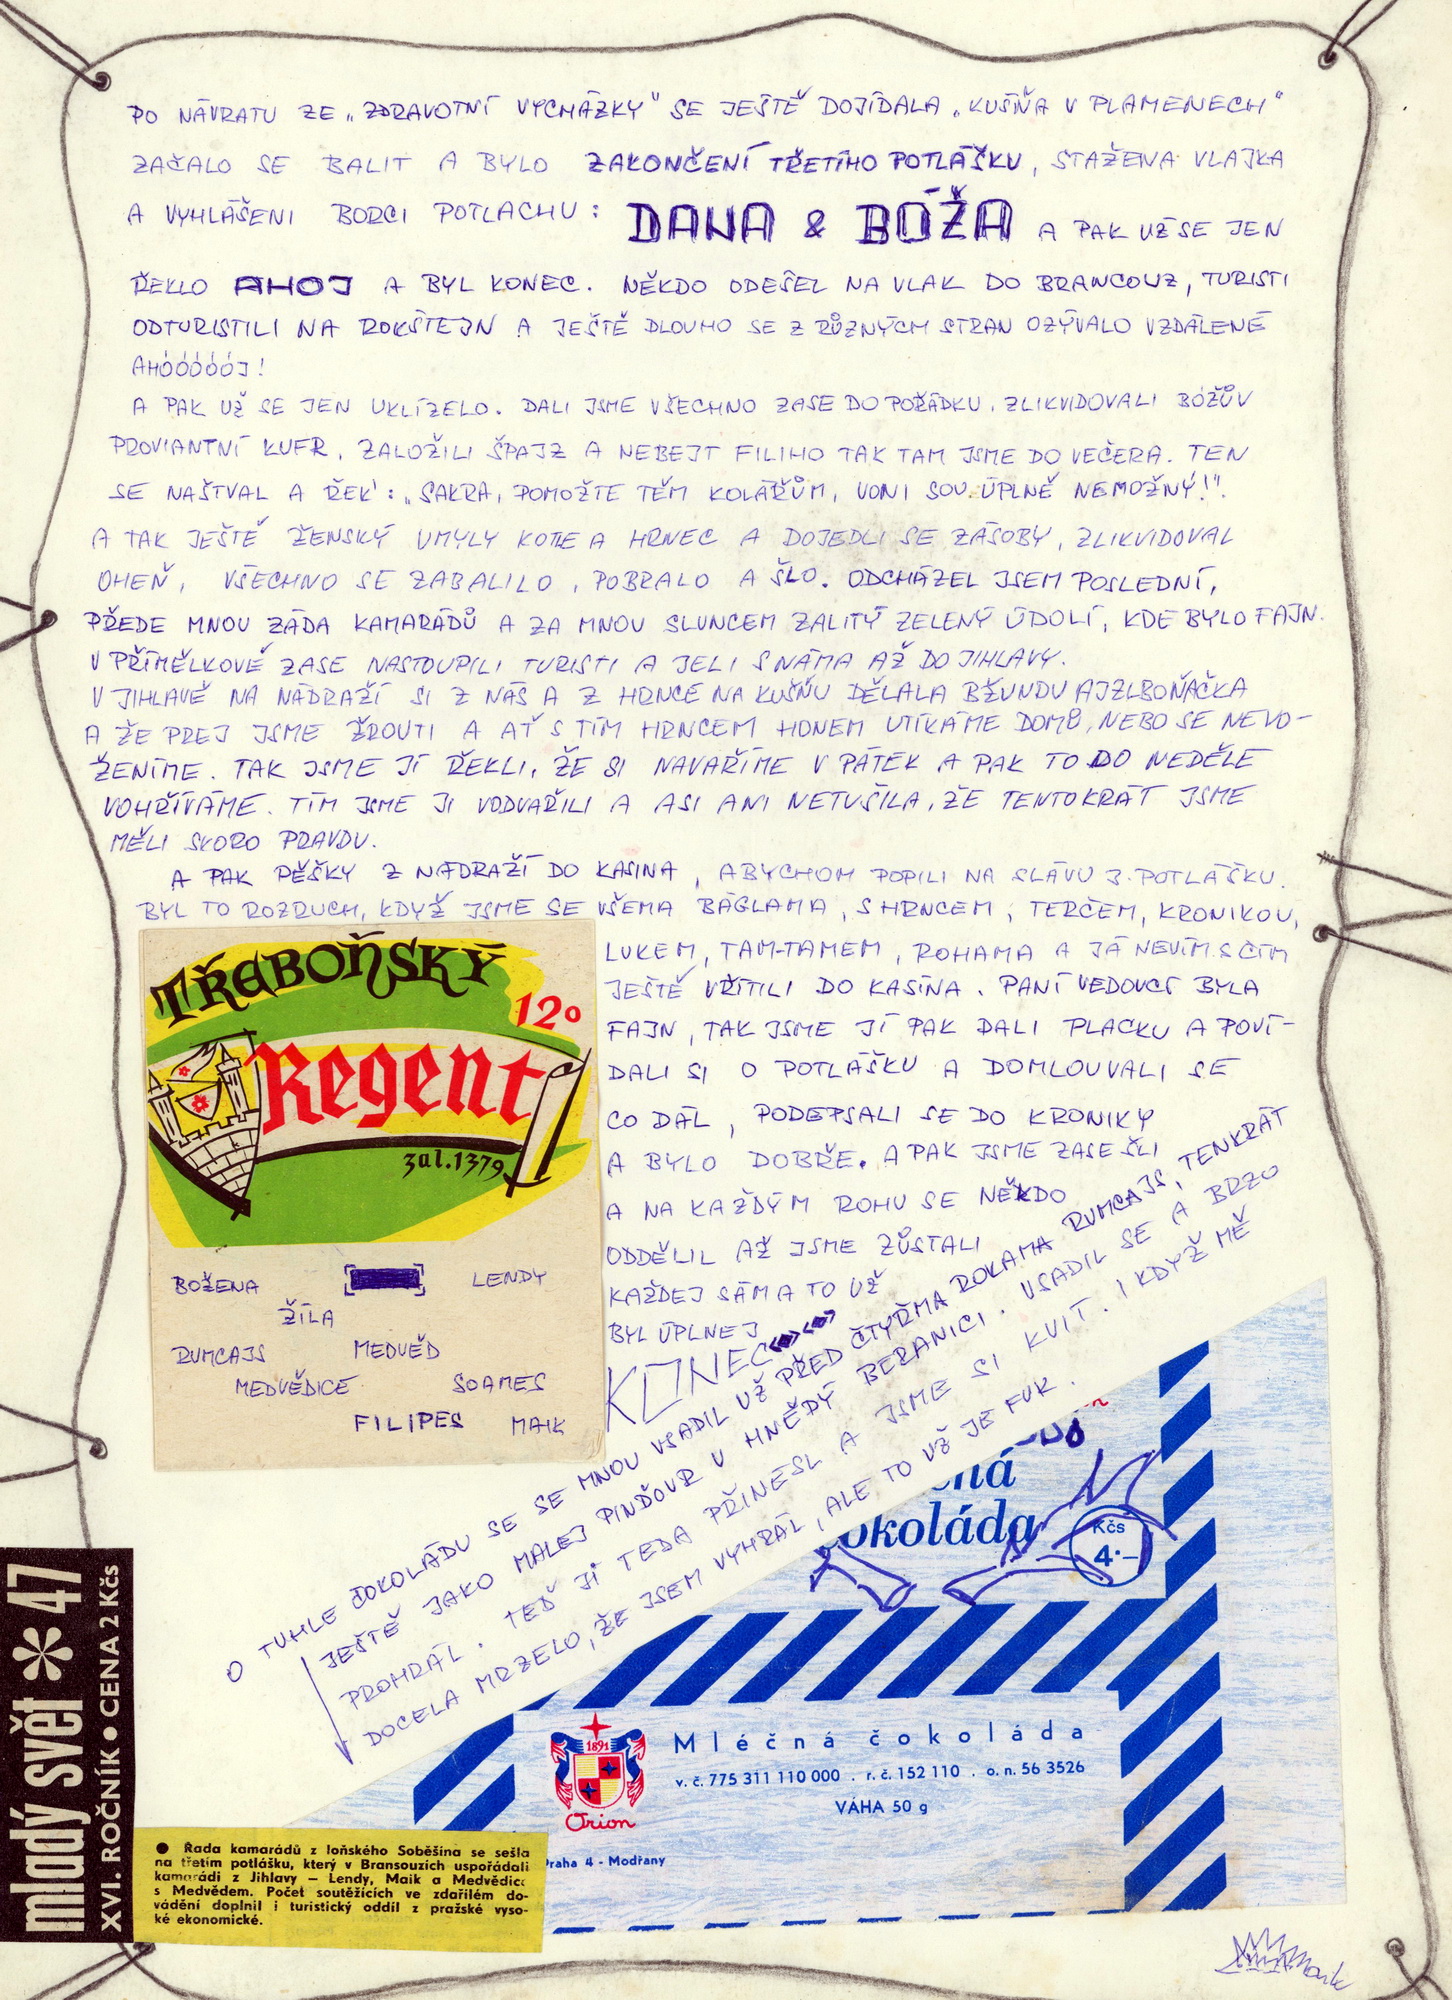 PO NÁVRATU ZE „ZDRAVOTNÍ VYCHÁZKY" SE JEŠTĚ DOJÍDALA „KUŠŇA V PLAMENECH"
ZAČALO SE BALIT A BYLO ZAKONČENÍ TŘETÍHO POTLÁŠKU, STAŽENA VLAJKA
A VYHLÁŠENI BORCI POTLACHU: DANA & BÓŽA A PAK UŽ SE JEN
ŘEKLO AHOJ A BYL KONEC. NĚKDO ODEŠEL NA VLAK DO BRANCOUZ, TURISTI
ODTURISTILI NA ROKŠTEJN A JEŠTĚ DLOUHO SE Z RŮZNÝCH STRAN OZÝVALO VZDÁLENÉ
AHÓÓÓÓÓJ!
A PAK UŽ SE JEN UKLÍZELO. DALI JSME VŠECHNO ZASE DO POŘÁDKU, ZLIKVIDOVALI BÓŽŮV
PROVIANTNÍ KUFR, ZALOŽILI ŠPAJZ A NEBEJT FILIHO TAK TAM JSME DO VEČERA. TEN
SE NAŠTVAL A ŘEK': „SAKRA, POMOŽTE TĚM KOLÁŘŮM, VONI SOU ÚPLNĚ NEMOŽNÝ!".
A TAK JEŠTĚ ŽENSKÝ UMYLY KOTLE A HRNEC A DOJEDLI SE ZÁSOBY, ZLIKVIDOVAL
OHEŇ, VŠECHNO SE ZABALILO, POBRALO A ŠLO. ODCHÁZEL JSEM POSLEDNÍ,
PŘEDE MNOU ZÁDA KAMARÁDŮ A ZA MNOU SLUNCEM ZALITÝ ZELENÝ ÚDOLÍ, KDE BYLO FAJN.
V PŘÍMĚLKOVĚ ZASE NASTOUPILI TURISTI A JELI S NÁMA AŽ DO JIHLAVY.
V JIHLAVĚ NA NÁDRAŽÍ SI Z NÁS A Z HRNCE NA KUŠŇU DĚLALA BŽUNDU AJZLBOŇAČKA
A ŽE PREJ JSME ŽROUTI A AŤ S TÍM HRNCEM HONEM UTÍKÁME DOMŮ, NEBO SE NEVO-
ŽENÍME. TAK JSME JÍ ŘEKLI, ŽE SI NAVAŘÍME V PÁTEK A PAK TO DO NEDĚLE
VOHŘÍVÁME. TÍM JSME JI VODVAŘILI A ASI ANI NETUŠILA, ŽE TENTOKRÁT JSME
MĚLI SKORO PRAVDU.
A PAK PĚŠKY Z NÁDRAŽÍ DO KASINA, ABYCHOM POPILI NA SLÁVU 3. POTLÁŠKU.
BYL TO ROZRUCH, KDYŽ JSME SE VŠEMA BÁGLAMA, S HRNCEM, TERČEM, KRONIKOU,
LUKEM, TAM-TAMEM, ROHAMA A JÁ NEVÍM S ČÍM
JEŠTĚ VŘÍTILI DO KASÍNA. PANÍ VEDOUCÍ BYLA
FAJN, TAK JSME JÍ PAK DALI PLACKU A POVÍ-
DALI SI O POTLÁŠKU A DOMLOUVALI SE
CO DÁL, PODEPSALI SE DO KRONIKY
A BYLO DOBŘE. A PAK JSME ZASE ŠLI
A NA KAŽDÝM ROHU SE NĚKDO
ODDĚLIL AŽ JSME ZŮSTALI
KAŽDEJ SÁM A TO UŽ
BYL ÚPLNEJ
KONEC
TŘEBOŇSKÝ
12°
Regent
zal. 1379
BOŽENA LENDY
ŽÍLA
RUMCAJS MEDVĚD
MEDVĚDICE SOAMES
FILIPES MAIK
O TUHLE ČOKOLÁDU SE SE MNOU VSADIL UŽ PŘED ČTYŘMA ROKAMA RUMCAJS, TENKRÁT
JEŠTĚ JAKO MALEJ PINĎOUR V HNĚDÝ BERANICI. VSADIL SE A BRZO
PROHRÁL. TEĎ JÍ TEDA PŘINESL A JSME SI KVIT. I KDYŽ MĚ
DOCELA MRZELO, ŽE JSEM VYHRÁL, ALE TO UŽ JE FUK.
okoláda
Kčs
4.–
1891
Orion
Mléčná čokoláda
v. č. 775 311 110 000 . r. č. 152 110 . o. n. 56 3526
VÁHA 50 g
Praha 4 - Modřany
mladý svět * 47
XVI. ROČNÍK • CENA 2 Kčs
● Řada kamarádů z loňského Soběšína se sešla
na třetím potlášku, který v Bransouzích uspořádali
kamarádi z Jihlavy — Lendy, Maik a Medvědice
s Medvědem. Počet soutěžících ve zdařilém do-
vádění doplnil i turistický oddíl z pražské vyso-
ké ekonomické.